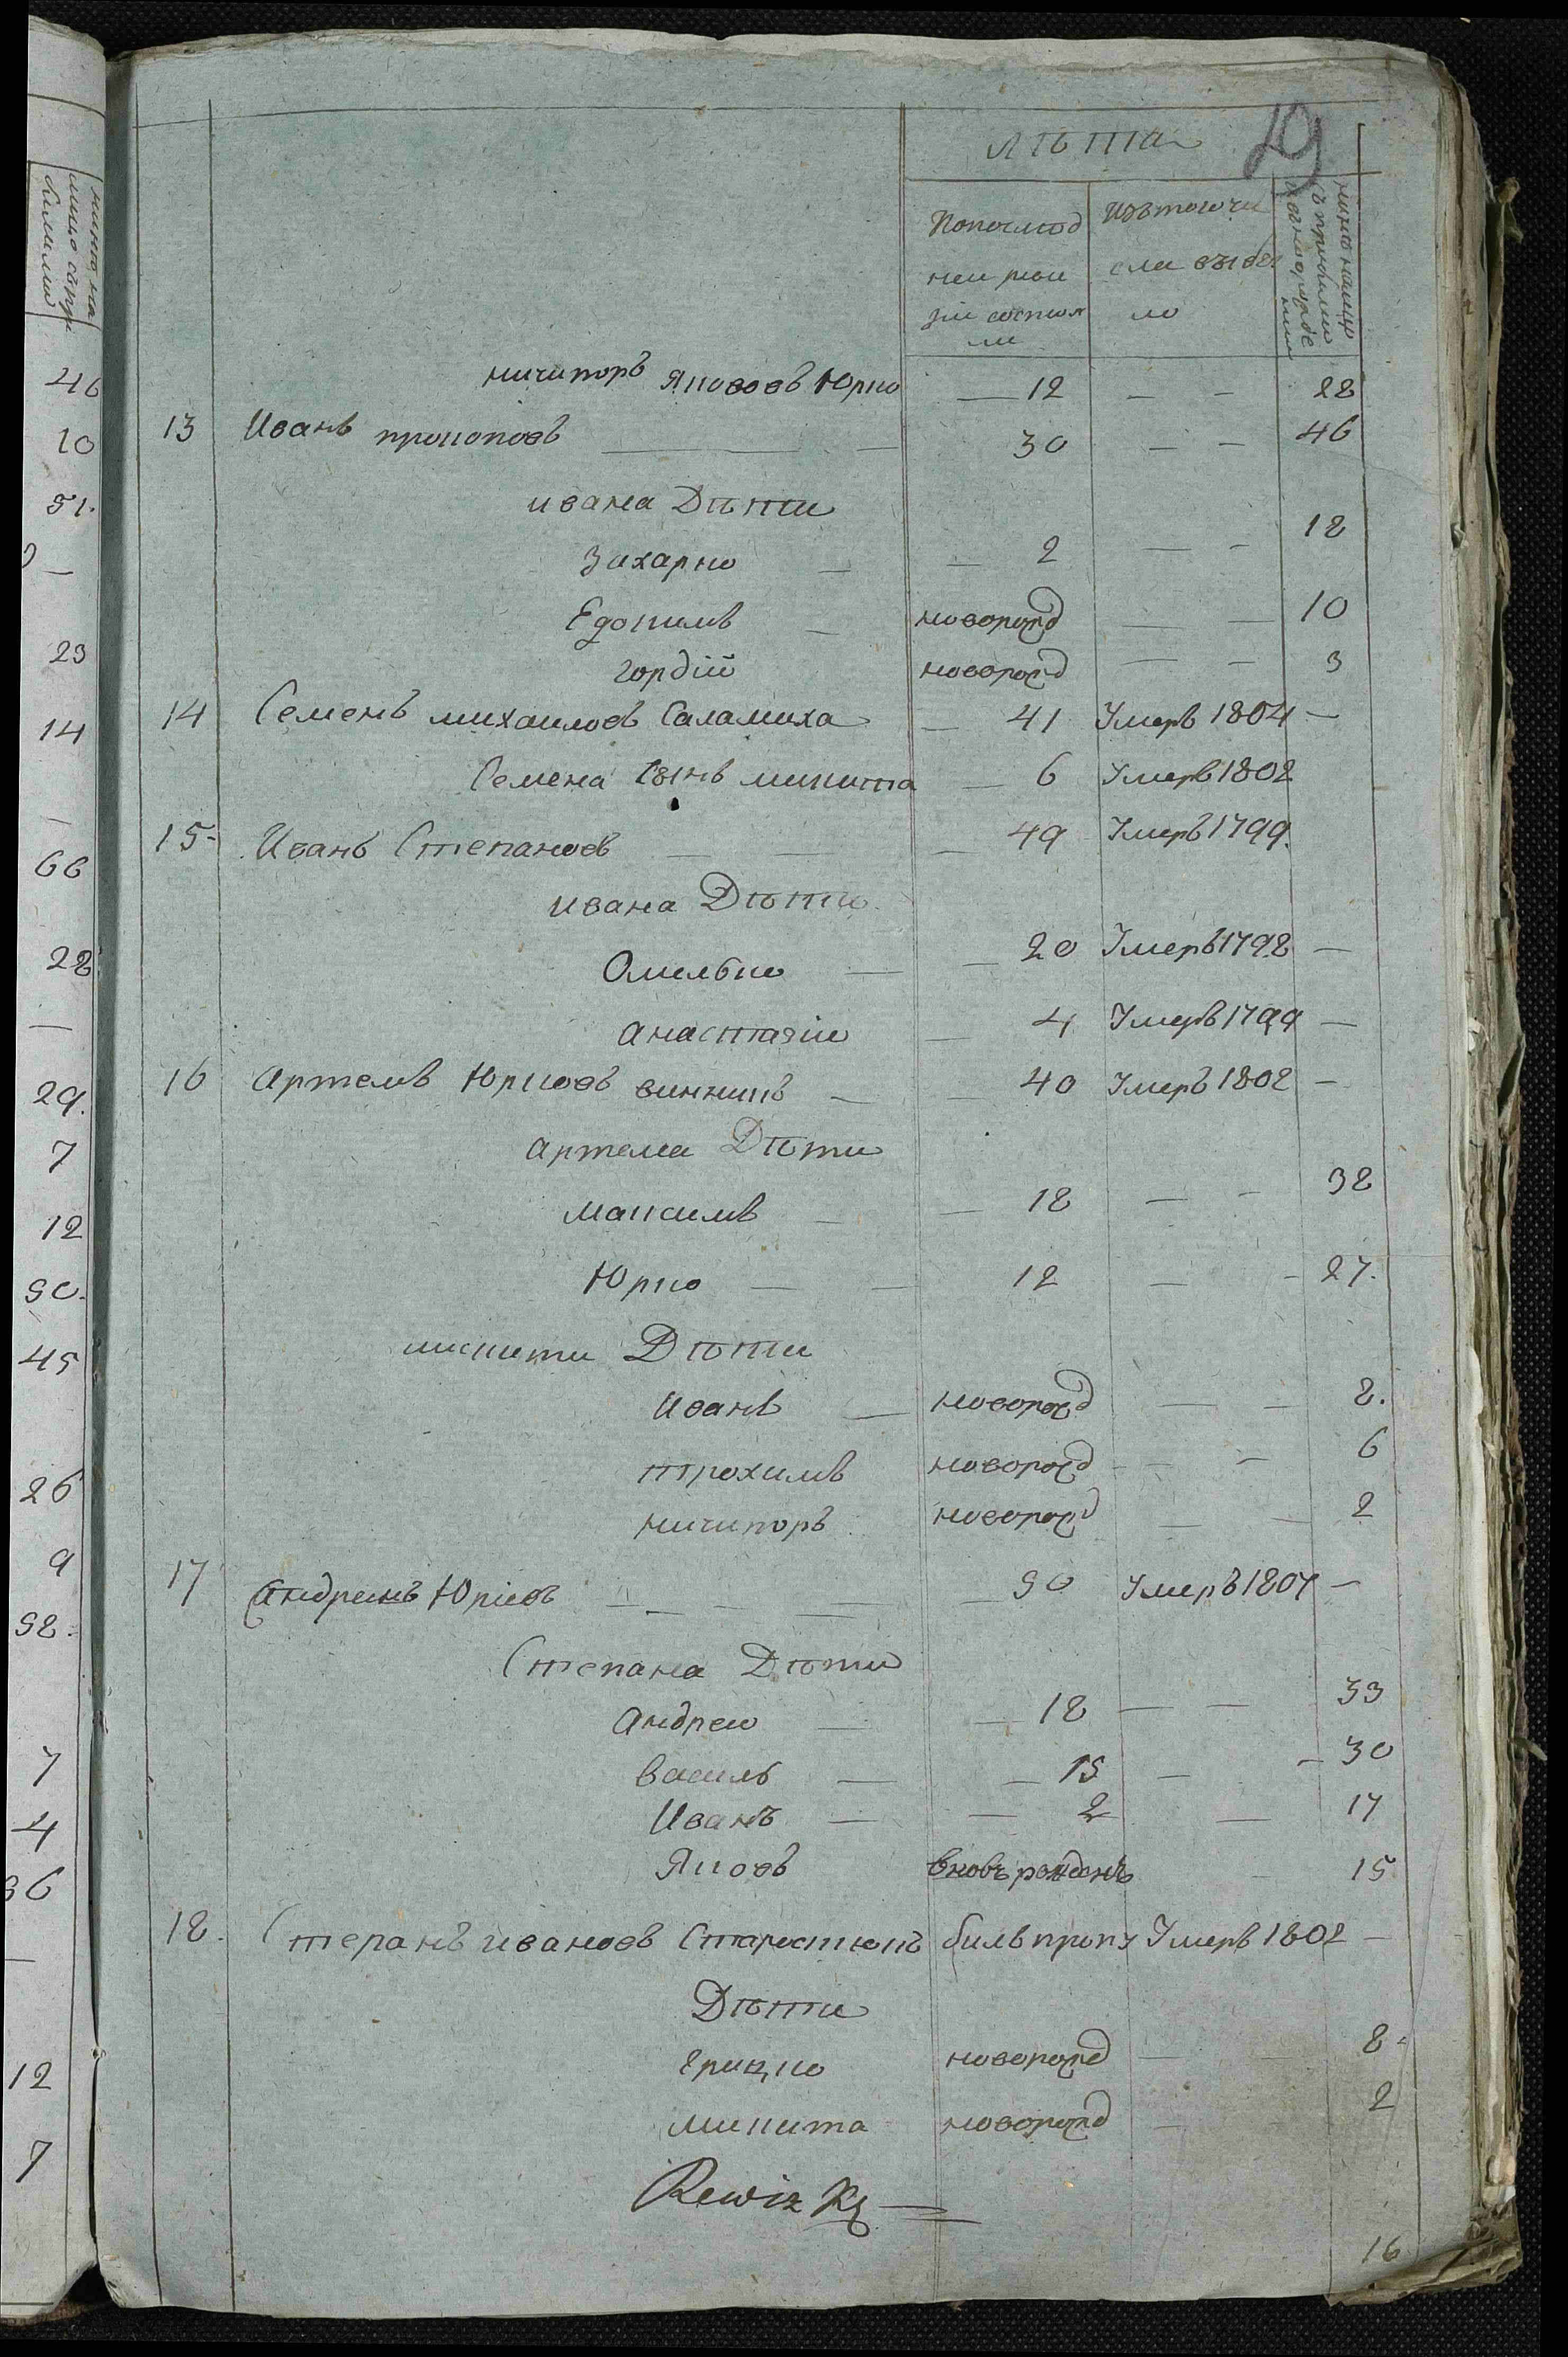 19
лѣта
Попослѣд
неи реви
зіи состоя
ли
Изътогочи
сла выбы
ло
нинѣ налицо
съ прибылими
новнорожде
ними
ничипоръ Яковов Юрко — 12 — — 28
13 Иванъ прокоповъ — — 30 — — 46
ивана Дѣти
Захарко — — 2 — — 18
новорожд — — 10
гордій новорожд — — 3
14 Семенъ михаиловъ Саламаха — 41 Умеръ 1804 —
Семена Сынъ микита — 6 Умеръ 1802
15 Иванъ Степановъ — — — 49 Умеръ 1799
ивана Дѣти
Омелько — — 20 Умеръ 1798 —
анастазіи — 4 Умеръ 1799 —
16 Артемъ Юрковъ винникъ — — 40 Умеръ 1802 —
артема Дѣти
Максимъ — — 18 — — 32
Юрко — — 12 — — 27.
микити Дѣти
Иванъ — новорожд — — 8.
трохимъ новорожд — — 6
ничипоръ новорожд — — 2
17 Андреи Юрковъ — — — — 50 Умеръ 1807 —
Степана Дѣти
Андреи — — 18 — — 33
Василь — — 15 — — 30
Иванъ — — 2 — 17
Яковъ вновь рожденъ 15
18. Степанъ ивановъ Старостюкъ билъ пропу Умеръ 1802 —
Дѣти
грицко новорожд — 8
микита новорожд — 2
Rewiz
16
46
10
51.
—
23
14
—
66
28
—
29.
7
12
50.
45
26
9
52.
7
4
36
—
12
7